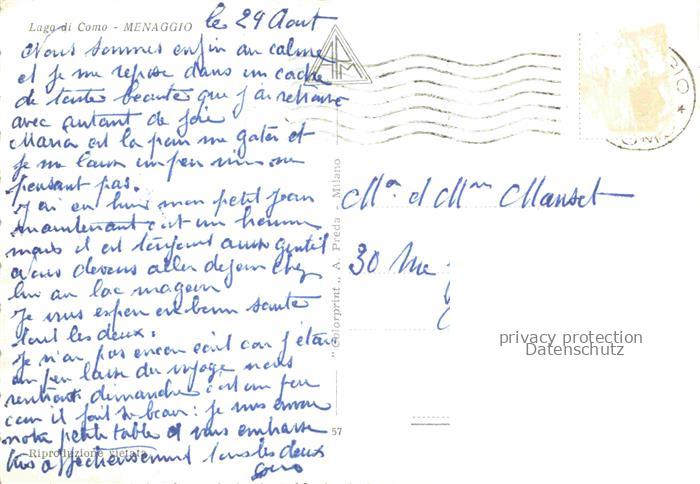 le 29 Aout
Lago di Como - MENAGGIO
Nous sommes enfin au calme
et je me repose dans un cadre
de toute beauté que j'ai retrouvé
avec autant de joie
Maria est là pour me gater et
je me laisse un peu vivre ne
pensant pas.
J'ai eu hier mon petit Jean
maintenant c'est un homme
mais il est toujours aussi gentil
Nous devons aller dejeuner chez
lui au lac majeur
Je vous espère en bonne santé
tout les deux.
Je n'ai pas encore écrit car j'étais
un peu lasse du voyage nous
rentrons dimanche c'est un peu
court il fait si beau: je vous envoie
notre petite table et vous embrasse
très affectueusement tous les deux
Riproduzione vietata
"Colorprint" A. Preda - Milano
57
APM
OMO
Mr et Mme Manset
30 Rue
privacy protection
Datenschutz